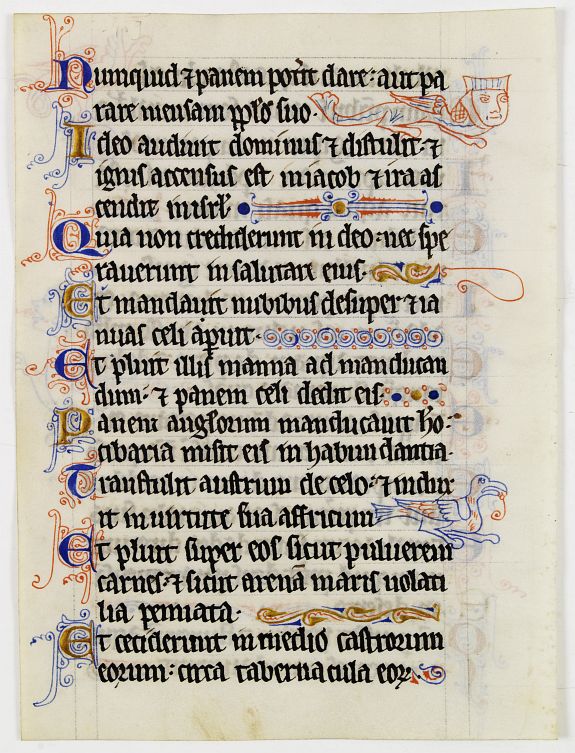 Numquid ⁊ panem poťit dare: aut pa
rare mensam pp̄lo suo.
Ideo audiuit dominus ⁊ distulit: ⁊
ignis accensus est in iacob ⁊ ira as
cendit in isrł
Quia non crediderunt in deo: nec spe
rauerunt in salutare eius.
Et mandauit nubibus desuper ⁊ ia
nuas celi apuit.
Et pluit illis manna ad manducan
dum: ⁊ panem celi dedit eis.
Panem anglorum manducauit ho:
cibaria misit eis in habundantia.
Transtulit austrum de celo: ⁊ indux
it in uirtute sua affricum
Et pluit super eos sicut puluerem
carnes: ⁊ sicut arenā maris uolati
lia pennata.
Et ceciderunt in medio castrorum
eorum: circa tabernacula eoꝝ.